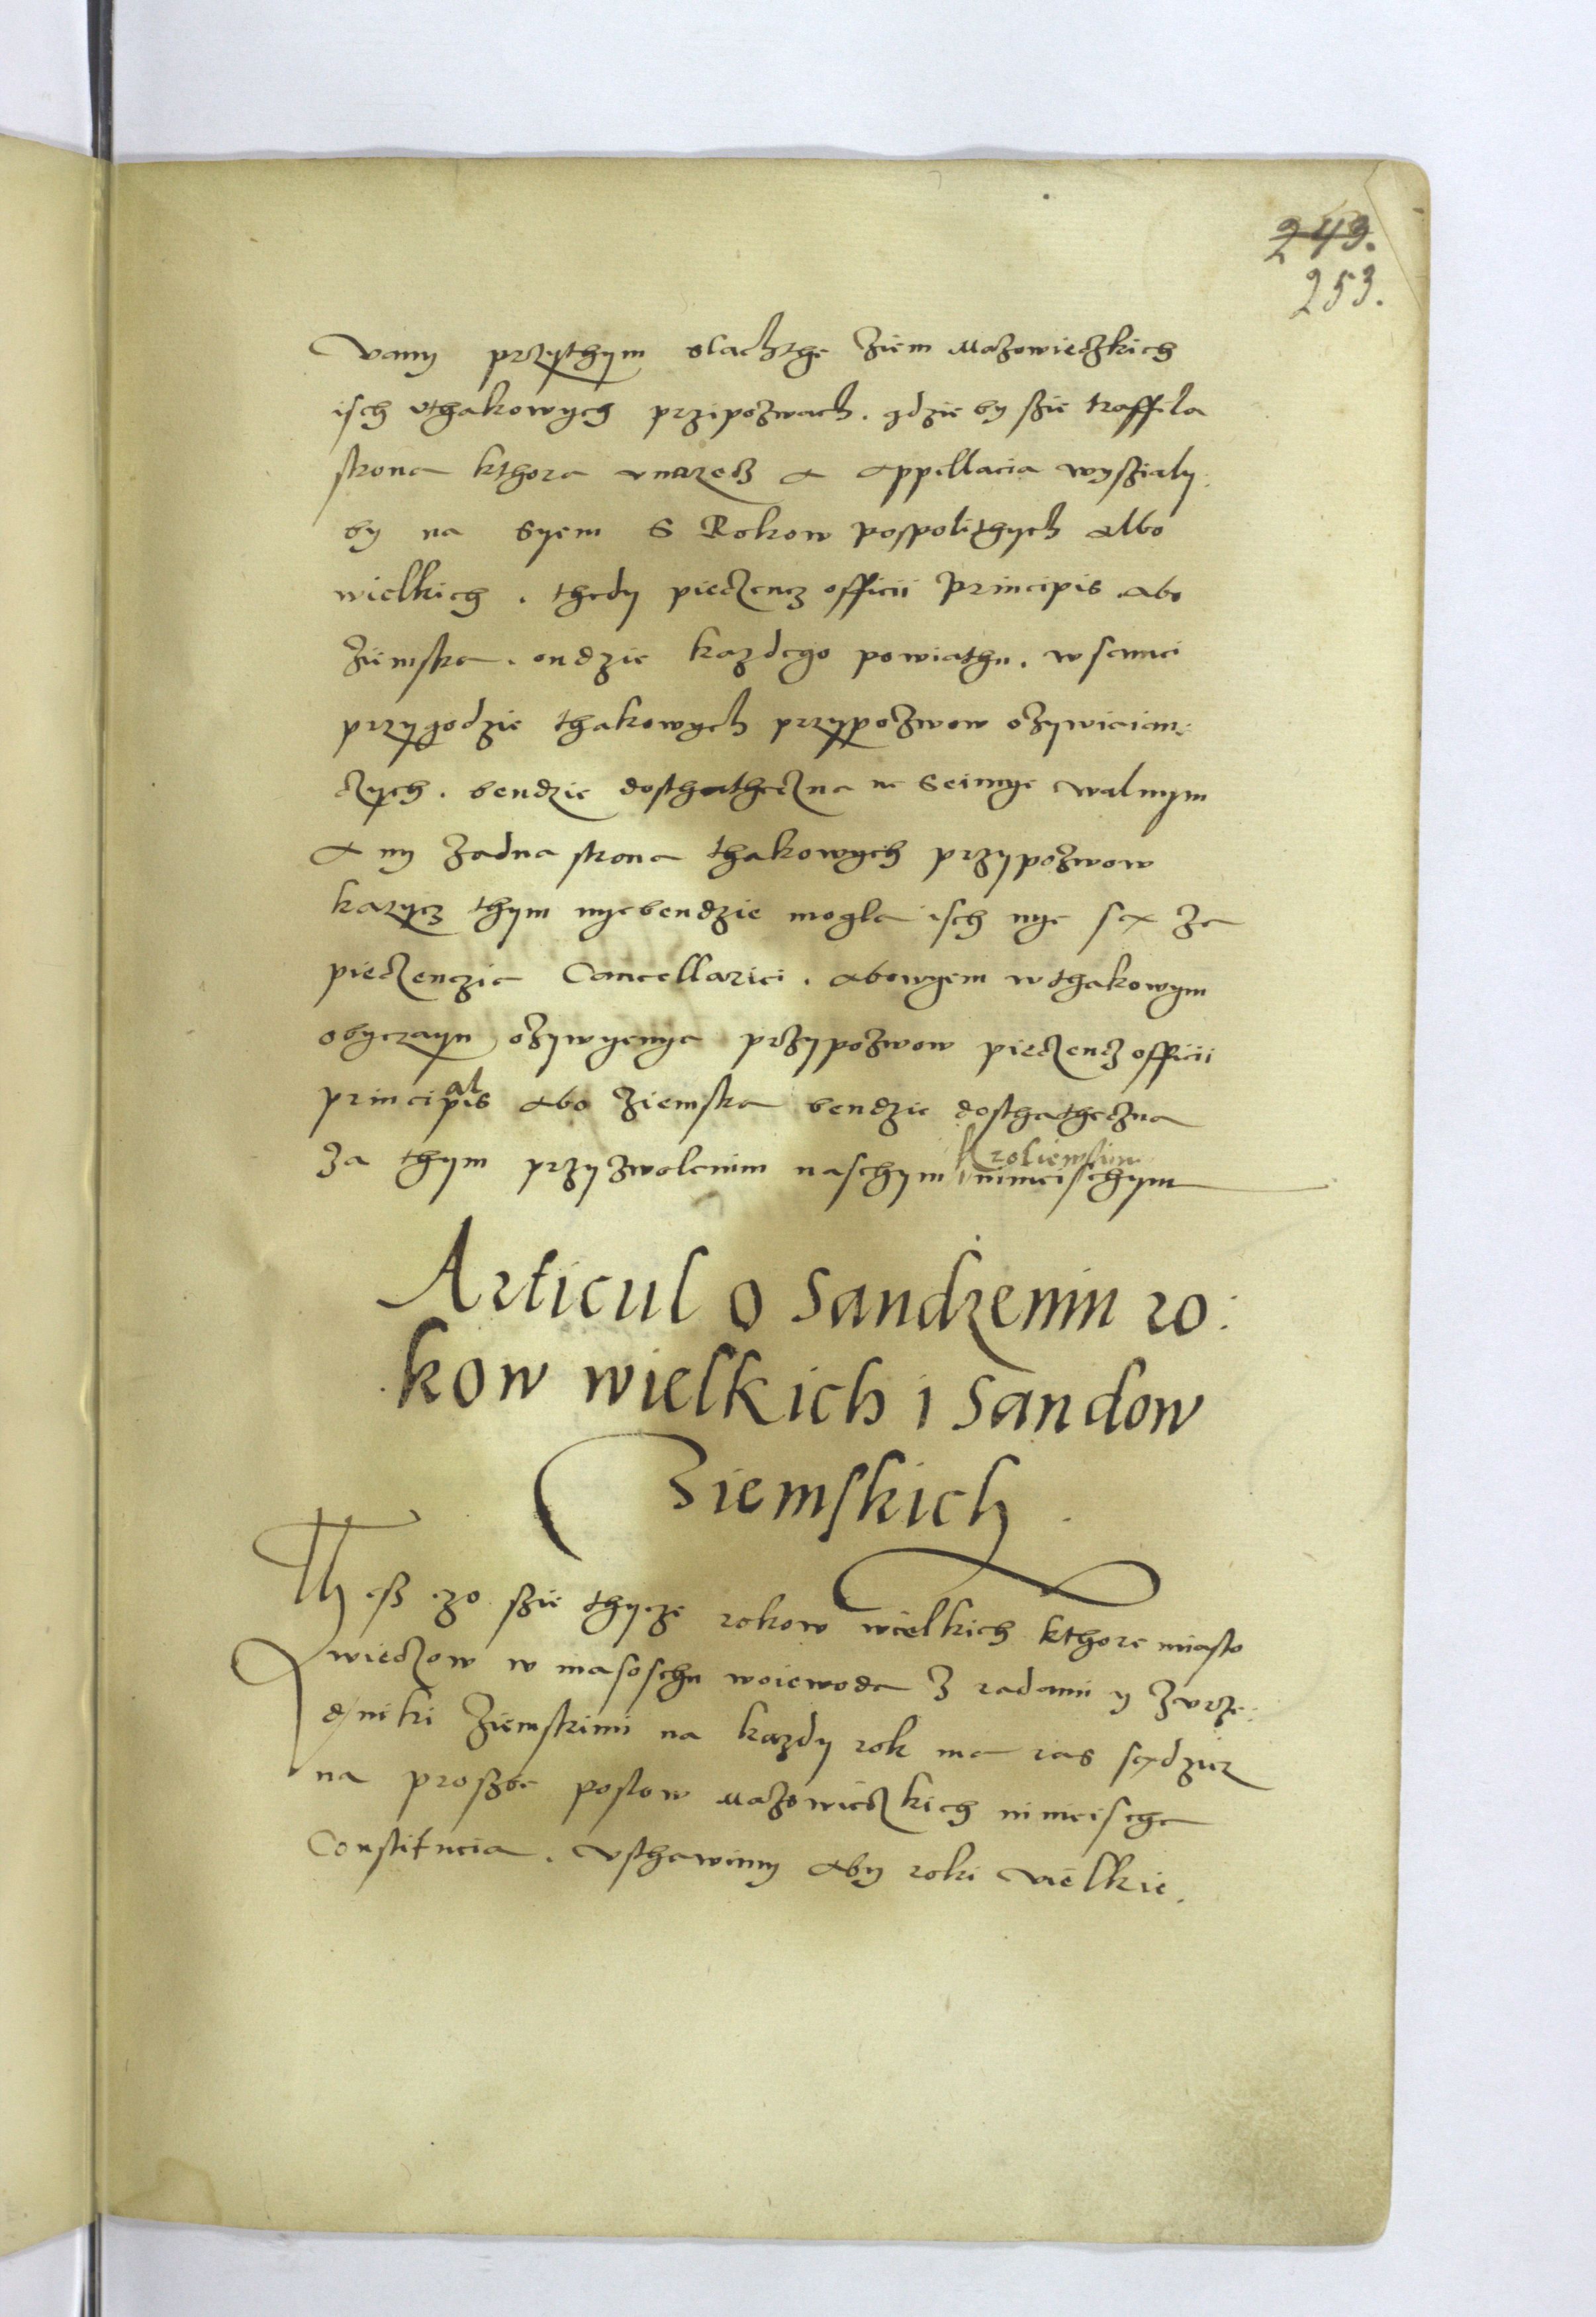 249.
253.
vamy przythym slachthe Ziem Mazowieczkich
isch vthakowych przipozwach. gdzie by szie traffila
strona kthora vnarzedz a Appellacia wysziały
by na syem s Rokow pospolithych albo
wielkich. thedy pieczencz officii Principis abo
Ziemska. ondzie kazdego powiathu. w samei
przygodzie thakowych przypozwow ozywiciam:
czych. bendzie dosthatheczna na Seimye walnym
a ny zadna strona thakowych przypozwow
karzycz thym nyebendzie mogla isch nye są za
pieczenczia Cancellariei. abowyem wthakowym
obyczayu ozywyenya przypozwow pieczencz officii
principalis abo ziemska bendzie dosthatheczna
za thym przyzwolenim naschym kroliewskim nimeischym
Articul o sandzeniu ro:
kow wielkich i sandow
Ziemskich
Thesz czo szie thycze rokow wielkich kthore miasto
wieczow w masoschu woiewoda z radami y zvrze:
dniki ziemskimi na kazdy rok ma ras sądzicz
na proszbe poslow Mazowieczkich nimeischa
Constitucia. vsthawimy aby roki vielkie.